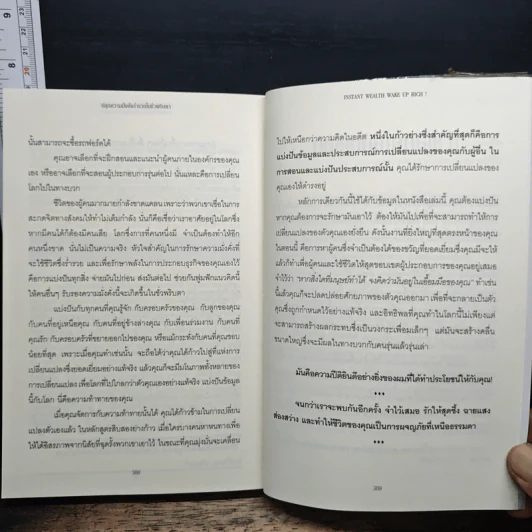 ปลุกความมั่งคั่งร่ำรวยในตัวคุณตื่น
นั้นสามารถจะซื้อรถฟอร์ดได้
คุณอาจเลือกที่จะฝึกสอนและแนะนำผู้คนภายในองค์กรของคุณ
เอง หรืออาจเลือกที่จะสอนผู้ประกอบการรุ่นต่อไป นั่นแหละคือการเปลี่ยน
โลกไปในทางบวก
ชีวิตของผู้คนมากมายกำลังขาดแคลน เพราะว่าพวกเขาเชื่อในการ
สะกดจิตทางสังคมให้ทำไม่เต็มกำลัง นั่นก็คือเชื่อว่าเราอาศัยอยู่ในโลกซึ่ง
หากมีคนได้ก็ต้องมีคนเสีย โลกซึ่งการที่คนหนึ่งมี จำเป็นต้องทำให้อีก
คนหนึ่งขาด นั่นไม่เป็นความจริง หัวใจสำคัญในการรักษาความมั่งคั่งที่
จะใช้ชีวิตซึ่งร่ำรวย และเพื่อรักษาพลังในการประกอบธุรกิจของคุณเองไว้
คือการแบ่งปันทุกสิ่ง จ่ายมันไปก่อน ส่งมันต่อไป ช่วยกันพูมฟักแนวคิดนี้
ให้คนอื่นๆ รับรองความมั่งคั่งนี้จะเกิดขึ้นในชั่วพริบตา
แบ่งปันกับทุกคนที่คุณรู้จัก กับครอบครัวของคุณ กับลูกของคุณ
กับคนที่อยู่เหนือคุณ กับคนที่อยู่ข้างล่างคุณ กับเพื่อนร่วมงาน กับคนที่
คุณรัก กับครอบครัวที่ขยายออกไปของคุณ หรือแม้กระทั่งกับคนที่คุณชอบ
น้อยที่สุด เพราะเมื่อคุณทำเช่นนั้น จะถือได้ว่าคุณได้ก้าวไปสู่ที่แห่งการ
เปลี่ยนแปลงซึ่งยอดเยี่ยมอย่างแท้จริง แล้วคุณก็จะมีมันในภาพทั้งหลายของ
การเปลี่ยนแปลง เพื่อโลกที่ไปไกลกว่าตัวคุณเองอย่างแท้จริง แบ่งปันข้อมูล
นี้กับโลก นี่คือความท้าทายของคุณ
เมื่อคุณจัดการกับความท้าทายนั้นได้ คุณได้ก้าวข้ามในการเปลี่ยน
แปลงตัวเองแล้ว ในหลักสูตรสิบสองย่างก้าว เมื่อใครบางคนหาหนทางเพื่อ
ให้ได้อิสรภาพจากนิสัยที่ฉุดรั้งพวกเขาเอาไว้ ในขณะที่คุณมุ่งมั่นจะเคลื่อน
388
INSTANT WEALTH WAKE UP RICH !
ไปให้เหนือกว่าความคิดในอดีต หนึ่งในก้าวย่างซึ่งสำคัญที่สุดก็คือการ
แบ่งปันข้อมูลและประสบการณ์การเปลี่ยนแปลงของคุณกับผู้อื่น ใน
การสอนและแบ่งปันประสบการณ์นั้น คุณได้รักษาการเปลี่ยนแปลงของ
คุณเองให้ดำรงอยู่
หลักการเดียวกันนี้ใช้ได้กับข้อมูลในหนังสือเล่มนี้ คุณต้องแบ่งปัน
หากคุณต้องการจะรักษามันเอาไว้ ต้องให้มันไปเพื่อที่จะสามารถทำให้การ
เปลี่ยนแปลงของตัวคุณเองยั่งยืน ดังนั้นงานที่ยิ่งใหญ่ที่สุดตรงหน้าของคุณ
ในตอนนี้ คือการหาผู้คนซึ่งจำเป็นต้องได้ของขวัญที่ยอดเยี่ยมซึ่งคุณมีจะให้
แล้วก็ทำเพื่อผู้คนและใช้ชีวิตให้สุดขอบเขตผู้ประกอบการของคุณอยู่เสมอ
จำไว้ว่า "หากสิ่งใดที่มนุษย์ทำได้ จงคิดว่ามันอยู่ในเอื้อมมือของคุณ" ทำเช่น
นี้แล้วคุณก็จะปลดปล่อยศักยภาพของตัวคุณออกมา เพื่อที่จะกลายเป็นตัว
คุณซึ่งถูกกำหนดไว้อย่างแท้จริง และอิทธิพลที่คุณทำในโลกนี้ไม่เพียงแต่
จะสามารถสร้างผลกระทบซึ่งเป็นวงกระเพื่อมเล็กๆ แต่มันจะสร้างคลื่น
ขนาดใหญ่ซึ่งจะมีผลในทางบวกกับคนรุ่นแล้วรุ่นเล่า
มันคือความปีติยินดีอย่างยิ่งของผมที่ได้ทำประโยชน์ให้กับคุณ!
***
จนกว่าเราจะพบกันอีกครั้ง จำไว้เสมอ รักให้สุดซึ้ง ฉายแสง
ส่องสว่าง และทำให้ชีวิตของคุณเป็นการผจญภัยที่เหนือธรรมดา
***
389